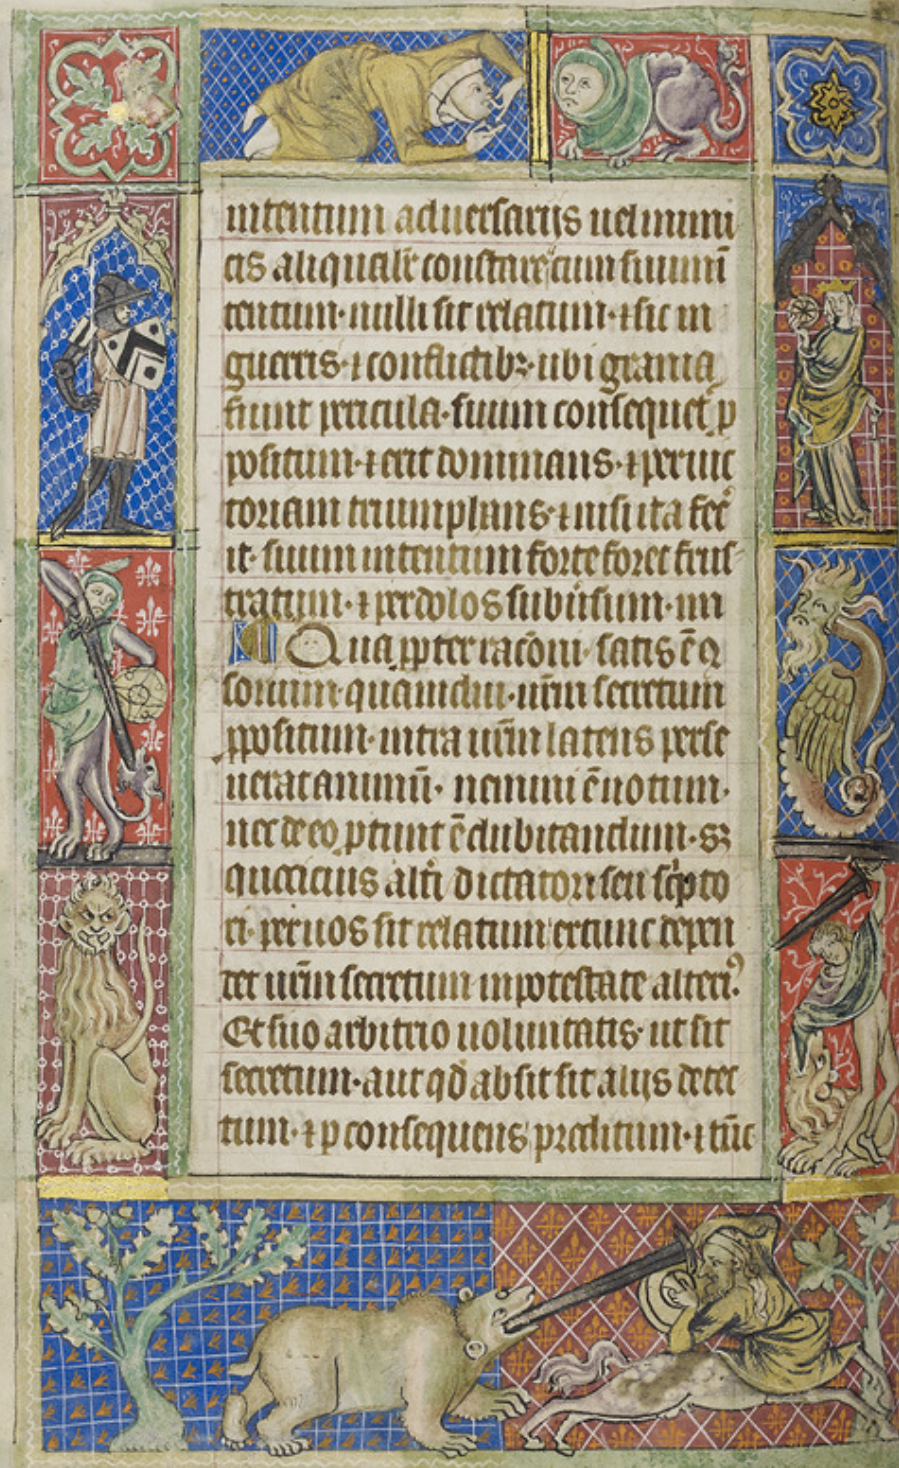 intentum aduersarijs uel inimi
cis aliqualit̄ constare cum suum ī
tentum· nulli sit relatum· ⁊ sic in
guerris· ⁊ conflictibꝫ· ubi grauia
fiunt pericula· suum consequet̉ ꝓ
positum· ⁊ erit dominans· ⁊ per uic
toriam triumphans· ⁊ nisi ita fec̉
it· suum intentum forte foret frus
tratum· ⁊ per dolos
Qua ꝓpter satis ē
quamdiu· ur̄m secretum
ꝓpositum· intra ur̄m latens perse
uerat animū· nemini ē notum·
nec de eo ꝑtunt ē dubitandum· sꝫ
alt̉i dictatori seu sc̉pto
ri· per uos sit relatum ex tunc depen
det ur̄m secretum in potestate alteriꝰ·
Et suo arbitrio uoluntatis· ut sit
secretum· aut qd̄ absit sit alijs detec
tum· ⁊ ꝑ consequens ⁊ tūc